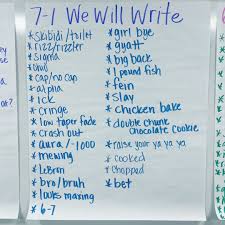 7-1 We Will Write
* skibidi/toilet
* rizz/rizzler
* sigma
* bruh
* cap/no cap
* alpha
* ick
* cringe
* low taper fade
* crash out
* aura/-1000
* mewing
* LeBron
* bro/bruh
* looks maxing
* 6-7
* girl bye
* gyatt
* big back
* 1 pound fish
* fein
* slay
* chicken bake
* double chunk
chocolate cookie
* raise your ya ya ya
* cooked
* chopped
* bet